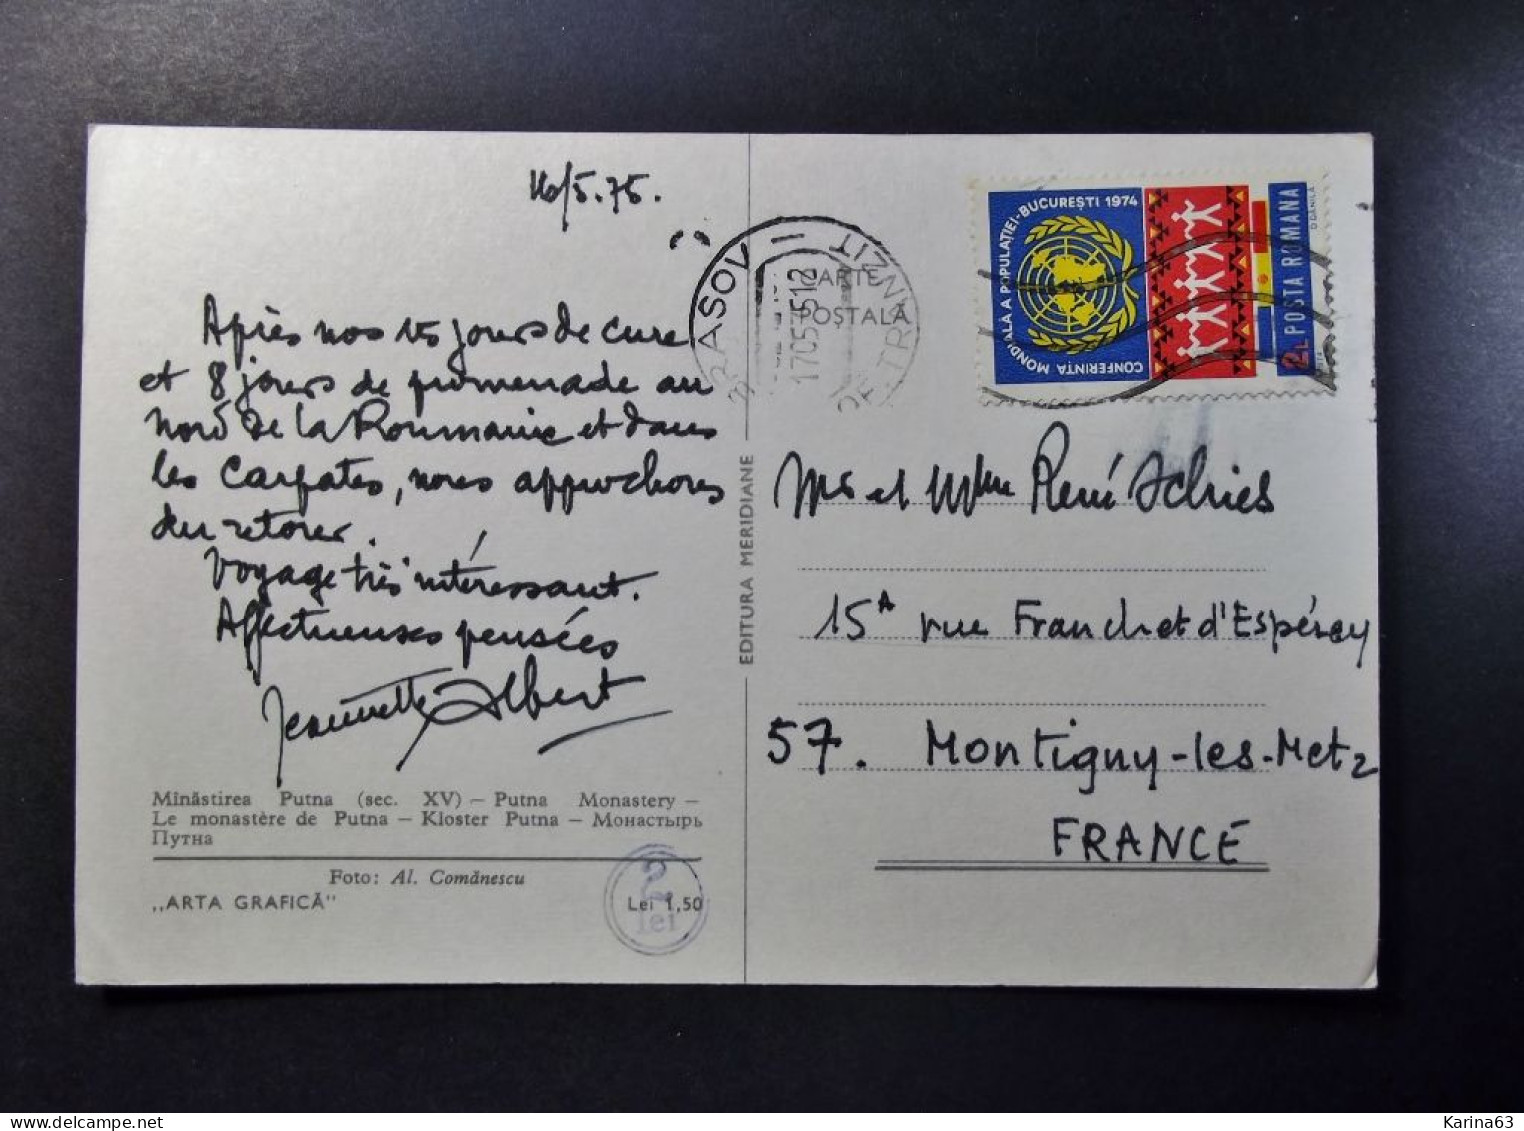 16/5.75.
Après nos 15 jours de cure
et 8 jours de promenade au
nord de la Roumanie et dans
les Carpates, nous approchons
du retour.
Voyage très intéressant.
Affectueuses pensées
Jeannette Albert
Mînăstirea Putna (sec. XV) — Putna Monastery —
Le monastère de Putna — Kloster Putna — Монастырь
Путна
Foto: Al. Comănescu
„ARTA GRAFICĂ"
Lei 1,50
2
lei
EDITURA MERIDIANE
CARTE
POȘTALĂ
BRASOV — DE TRANZIT
170575 12
CONFERINȚA MONDIALĂ A POPULAȚIEI-BUCUREȘTI 1974
2L POSTA ROMANA
D. DĂNILĂ
1974
et Mme René
15A rue Franchet d'Espérey
57. Montigny-les-Metz
FRANCE
Karina63